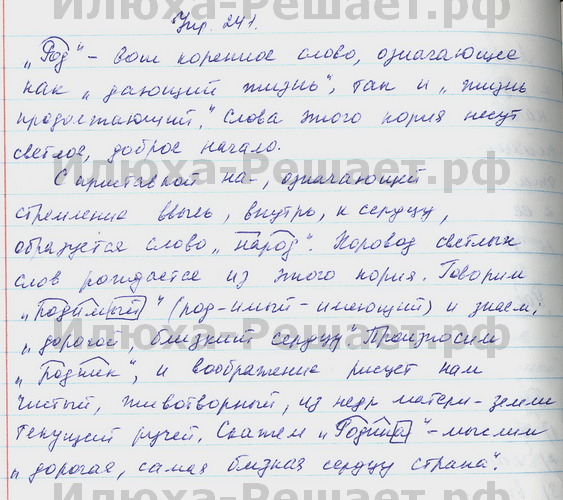 Илюха-Решает.ru
Упр. 241.
„Род" – вот коренное слово, означающее
как „дающий жизнь", так и „жизнь
продолжающий." Слова этого корня несут
светлое, доброе начало.
С приставкой на-, означающей
стремление ввысь, внутрь, к сердцу,
образуется слово „народ". Хоровод светлых
слов рождается из этого корня. Говорим
„Родимый" (род-имый-имеющий) и знаем:
„дорогой, близкий сердцу". Произносим
„Родник", и воображение рисует нам
чистый, животворный, из недр матери-земли
текущий ручей. Скажем „Родина" – мыслим
„дорогая, самая близкая сердцу страна".